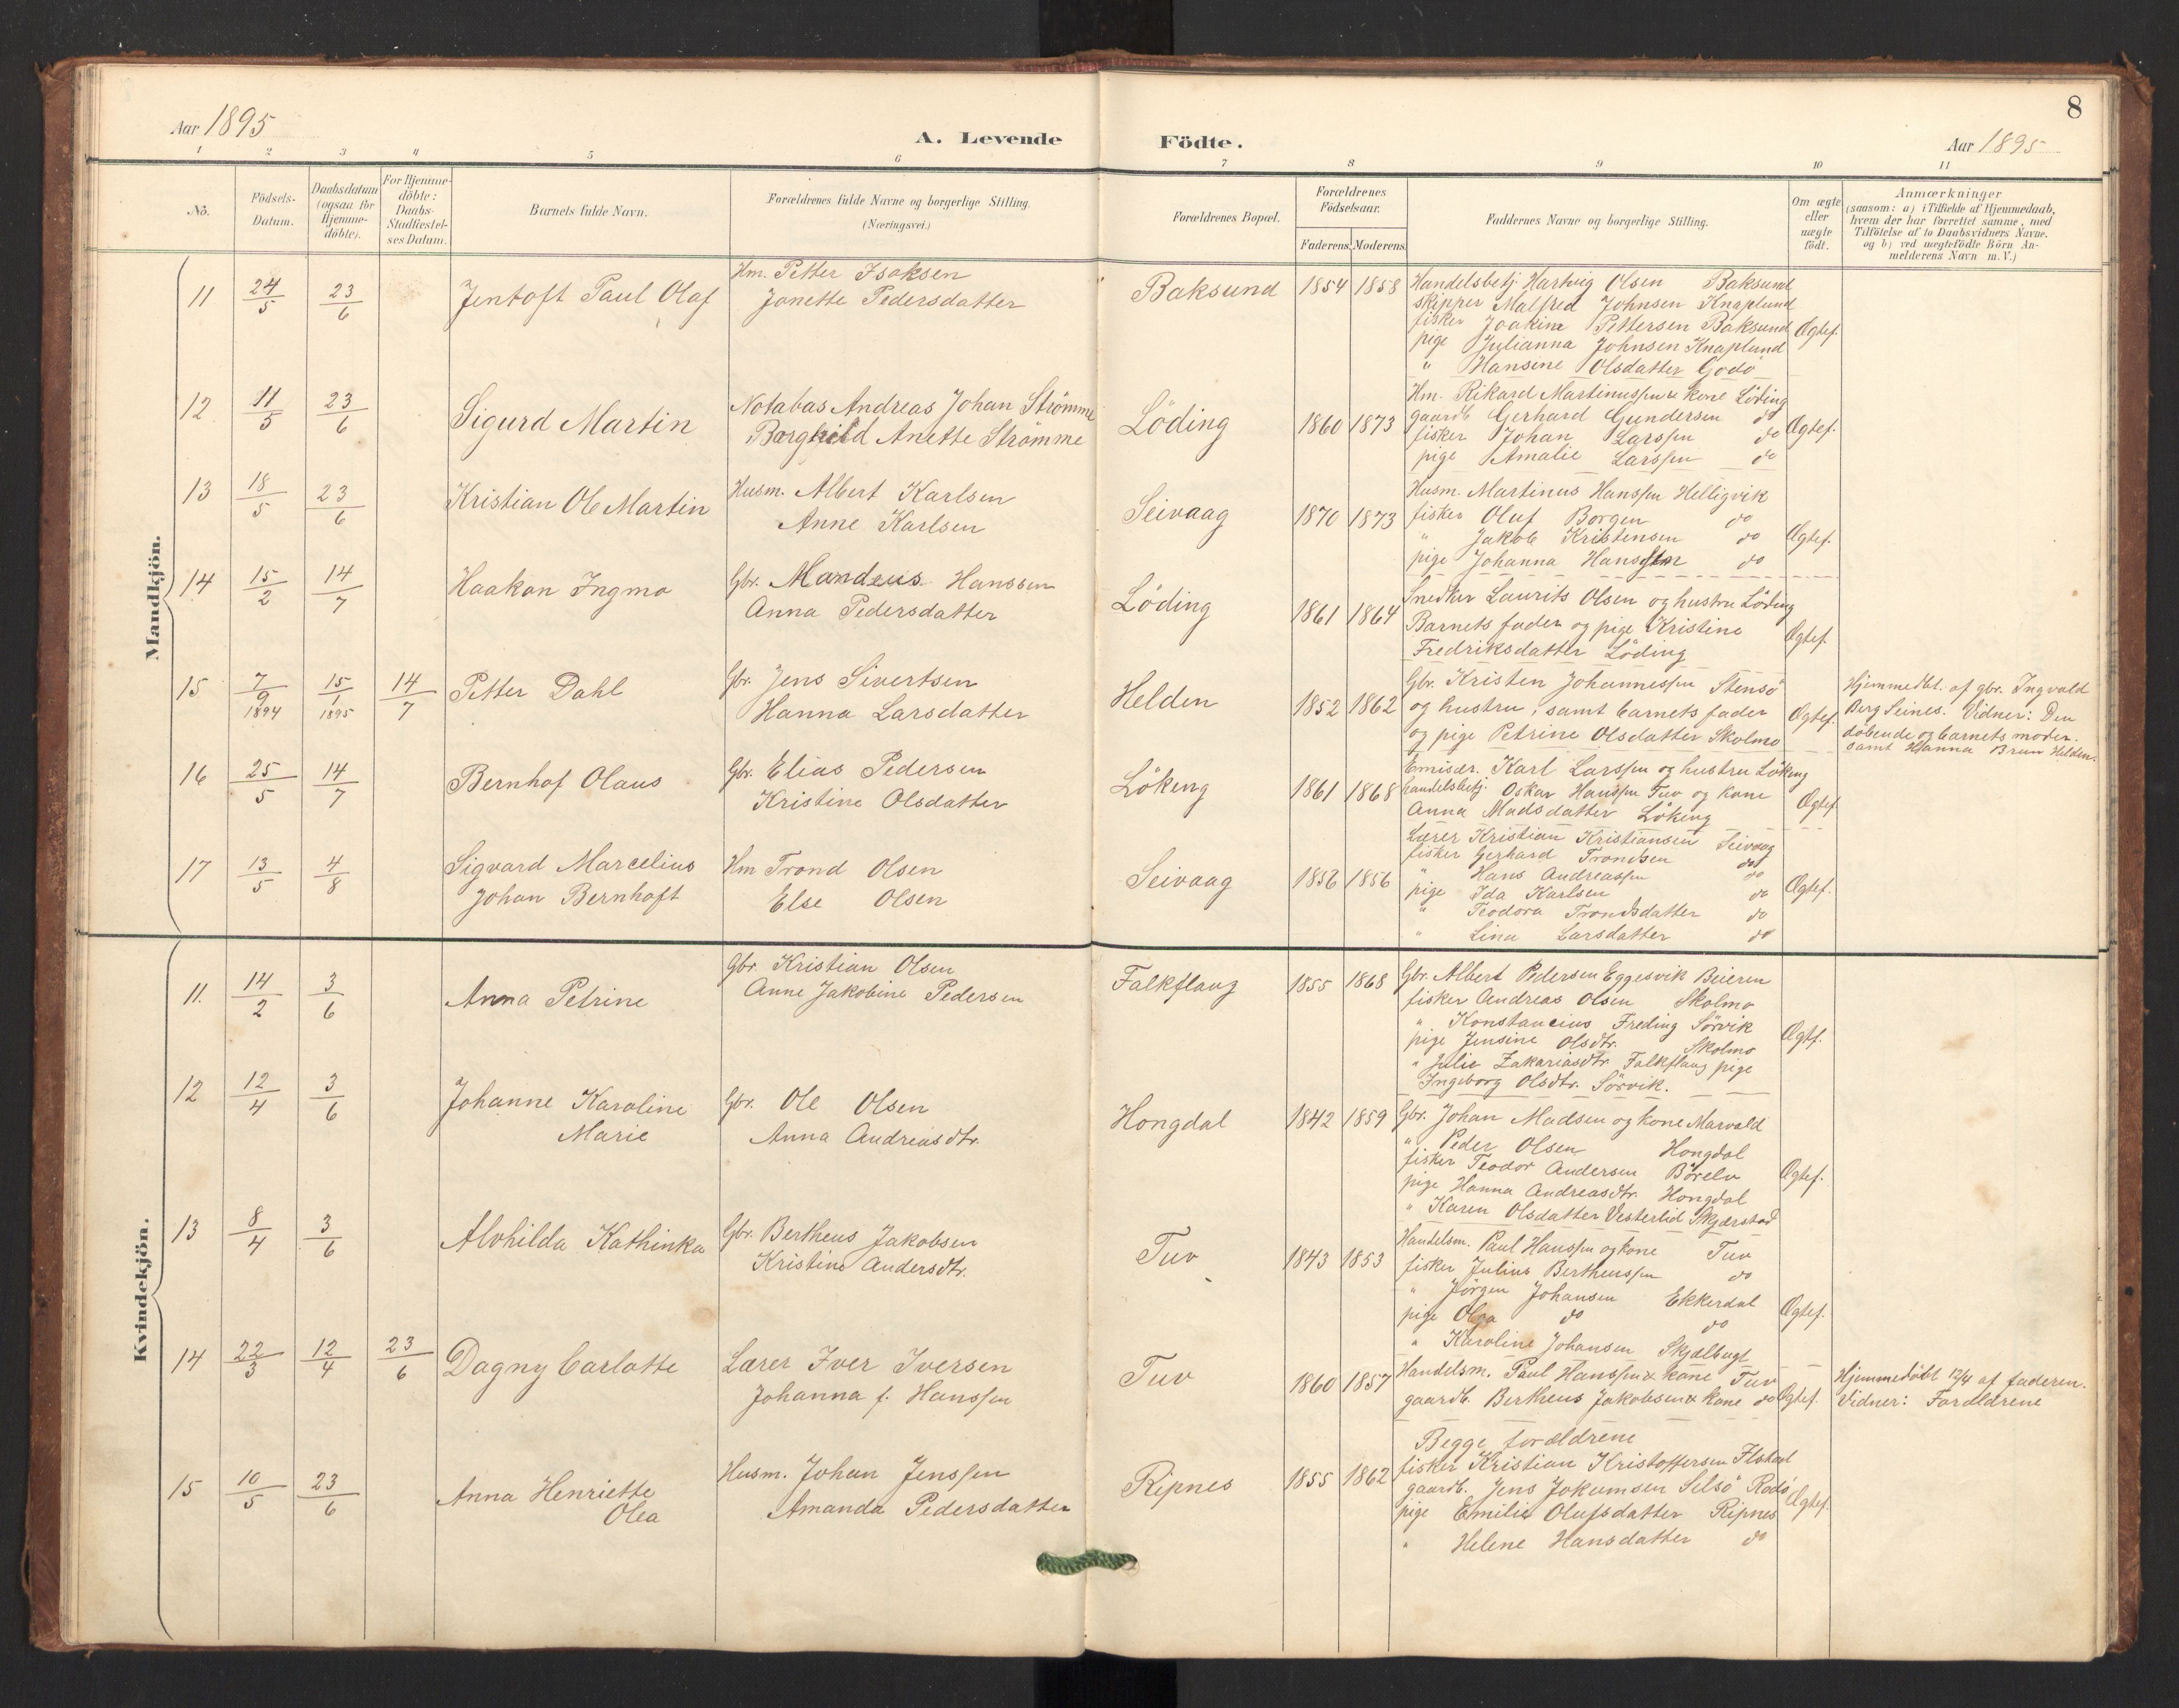 8
Aar 1895
A. Levende Födte.
Aar 1895
1 2 3 4 5 6 7 8 9 10 11
No.
Födsels-Datum.
Daabsdatum (ogsaa for Hjemme-döbte).
For Hjemme-döbte: Daabs-Stadfæstel-ses Datum.
Barnets fulde Navn.
Forældrenes fulde Navne og borgerlige Stilling (Næringsvei.)
Forældrenes Bopæl.
Forældrenes Födselsaar.
Faderens. Moderens.
Faddernes Navne og borgerlige Stilling.
Om ægte eller uægte födt.
Anmærkninger
(saasom: a) i Tilfælde af Hjemmedaab,
hvem der har forrettet samme, med
Tilföielse af to Daabsvidners Navne.
og b) ved uægtefödte Börn An-
melderens Navn m. V.)
Mandkjön.
11 24/5 23/6 Jentoft Paul Olaf
Hm. Petter Isaksen
Jonette Pedersdatter
Baksund 1854 1858
Handelsbetj. Hartvig Olsen Baksund
skipper Malfred Johnsen Knaplund
fisker Joakim Pettersen Baksund
pige Julianna Johnsen Knaplund
" Hansine Olsdatter Godö
Ægtef.
12 11/5 23/6 Sigurd Martin
Notabas Andreas Johan Strömme
Borghild Anette Strömme
Löding 1860 1873
Hm. Rikard Martinussen & kone Löding
gaardb. Gerhard Gundersen do
fisker Johan Larssen do
pige Amalie Larssen do
Ægtef.
13 18/5 23/6 Kristian Ole Martin
Husm. Albert Karlsen
Anne Karlsen
Seivaag 1870 1873
Husm. Martinus Hanssen Helligvik
fisker Oluf Borgen do
" Jakob Kristensen do
pige Johanna do
Ægtef.
14 15/2 14/7 Haakon Ingmo
Gbr. Mandeus Hanssen
Anna Pedersdatter
Löding 1861 1864
Snedker Laurits Olsen og hustru Löding
Barnets fader og pige Kristine
Fredriksdatter Löding
Ægtef.
15 7/9 1894 15/1 1895 14/7 Petter Dahl
Gbr. Jens Sivertsen
Hanna Larsdatter
Helden 1852 1862
Gbr. Kristen Johannessen Stensö
og hustru, samt barnets fader
og pige Petrine Olsdatter Skolmo
Ægtef.
Hjemmedbt. af gbr. Ingvald
Berg Seines. Vidner: Den
döbende og barnets moder.
samt Hanna Brun Helden.
16 25/5 14/7 Bernhof Olaus
Gbr. Elias Pedersen
Kristine Olsdatter
Lökeng 1861 1868
Emisær. Karl Larssen og hustru Löking
handelsbetj. Oskar Hanssen Tuv og kone
Anna Madsdatter Löking
Ægtef.
17 13/5 4/8 Sigvard Marcelius
Johan Bernhoft
Hm Trond Olsen
Else Olsen
Seivaag 1856 1856
Lærer Kristian Kristiansen Seivaag
fisker Gerhard Trondsen do
" Hans Andreassen do
pige Ida Karlsen do
" Teodora Trondsdatter do
" Lina Larsdatter do
Ægtef.
Kvindekjön.
11. 14/2 3/6 Anna Petrine
Gbr. Kristian Olsen
Anne Jakobine Pedersen
Falkflaug 1855 1868
Gbr. Albert Pedersen Eggesvik Beieren
fisker Andreas Olsen Skolmo
" Konstancius Freding Sörvik
pige Jensine Olsdtr. Skolmo
" Julie Zakariasdtr. Falkflaug pige
Ingeborg Olsdtr. Sörvik.
Ægtf.
12 12/4 3/6 Johanne Karoline
Marie
Gbr. Ole Olsen
Anna Andreasdtr.
Hongdal 1842 1859
Gbr. Johan Madsen og kone Marvold
" Peder Olsen Hongdal
fisker Teodor Andersen Börelv
pige Hanna Andreasdtr. Hongdal
" Karen Olsdatter Vesterlid Skjærstad
Ægtef.
13 8/4 3/6 Alvhilda Kathinka
Gbr. Bertheus Jakobsen
Kristine Andersdtr.
Tuv 1843 1853
Handelsm. Paul Hanssen og kone Tuv
fisker Julius Bertheussen do
" Jörgen Johansen Ekkerdal
pige Olga do do
" Karoline Johansen Skjælbugt
Ægtef.
14 22/3 12/4 23/6 Dagny Carlotte
Lærer Iver Iversen
Johanna f. Hanssen
Tuv 1860 1857
Handelsm. Paul Hanssen & kone Tuv
gaardb. Bertheus Jakobsen & kone do
Begge forældrene
Ægtef.
Hjemmedöbt 12/4 af faderen.
Vidner: Forældrene
15 10/5 23/6 Anna Henriette
Olea
Husm. Johan Jenssen
Amanda Pedersdatter
Ripnes 1855 1862
fisker Kristian Kristoffersen
gaardb. Jens Jokumsen Selsö Rödö
pige Emilie Olufsdatter Ripnes
" Helene Hansdatter do
Ægtef.